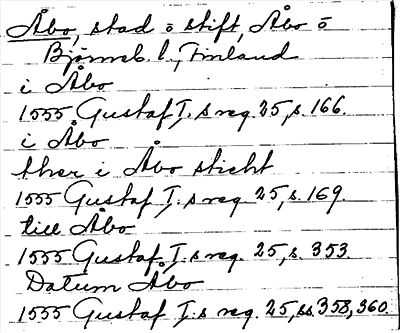 Åbo, stad o stift, Åbo o
Björneb. l., Finland
i Åbo
1555 Gustaf I.s reg. 25, s. 166.
i Åbo
ther i Åbo sticht
1555 Gustaf I.s reg. 25, s. 169.
till Åbo
1555 Gustaf I.s reg. 25, s. 353.
Datum Åbo
1555 Gustaf I.s reg. 25, ss. 358, 360.